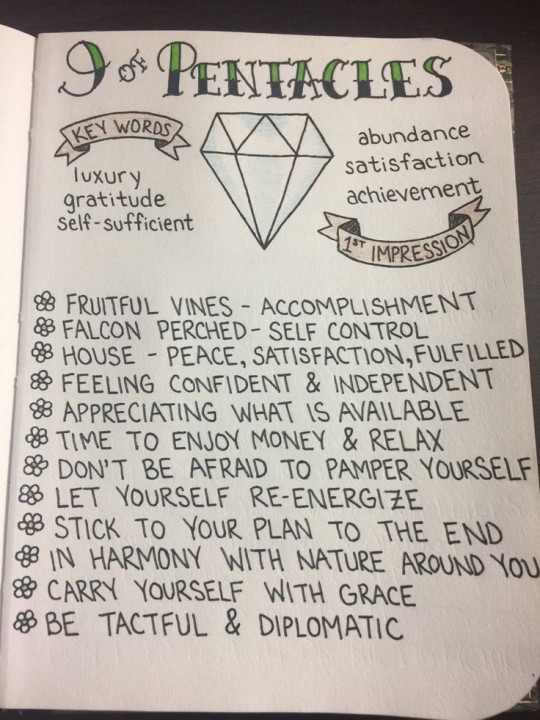 9 OF PENTACLES
KEY WORDS
luxury
gratitude
self-sufficient
abundance
satisfaction
achievement
1ST IMPRESSION
FRUITFUL VINES - ACCOMPLISHMENT
FALCON PERCHED - SELF CONTROL
HOUSE - PEACE, SATISFACTION, FULFILLED
FEELING CONFIDENT & INDEPENDENT
APPRECIATING WHAT IS AVAILABLE
TIME TO ENJOY MONEY & RELAX
DON'T BE AFRAID TO PAMPER YOURSELF
LET YOURSELF RE-ENERGIZE
STICK TO YOUR PLAN TO THE END
IN HARMONY WITH NATURE AROUND YOU
CARRY YOURSELF WITH GRACE
BE TACTFUL & DIPLOMATIC